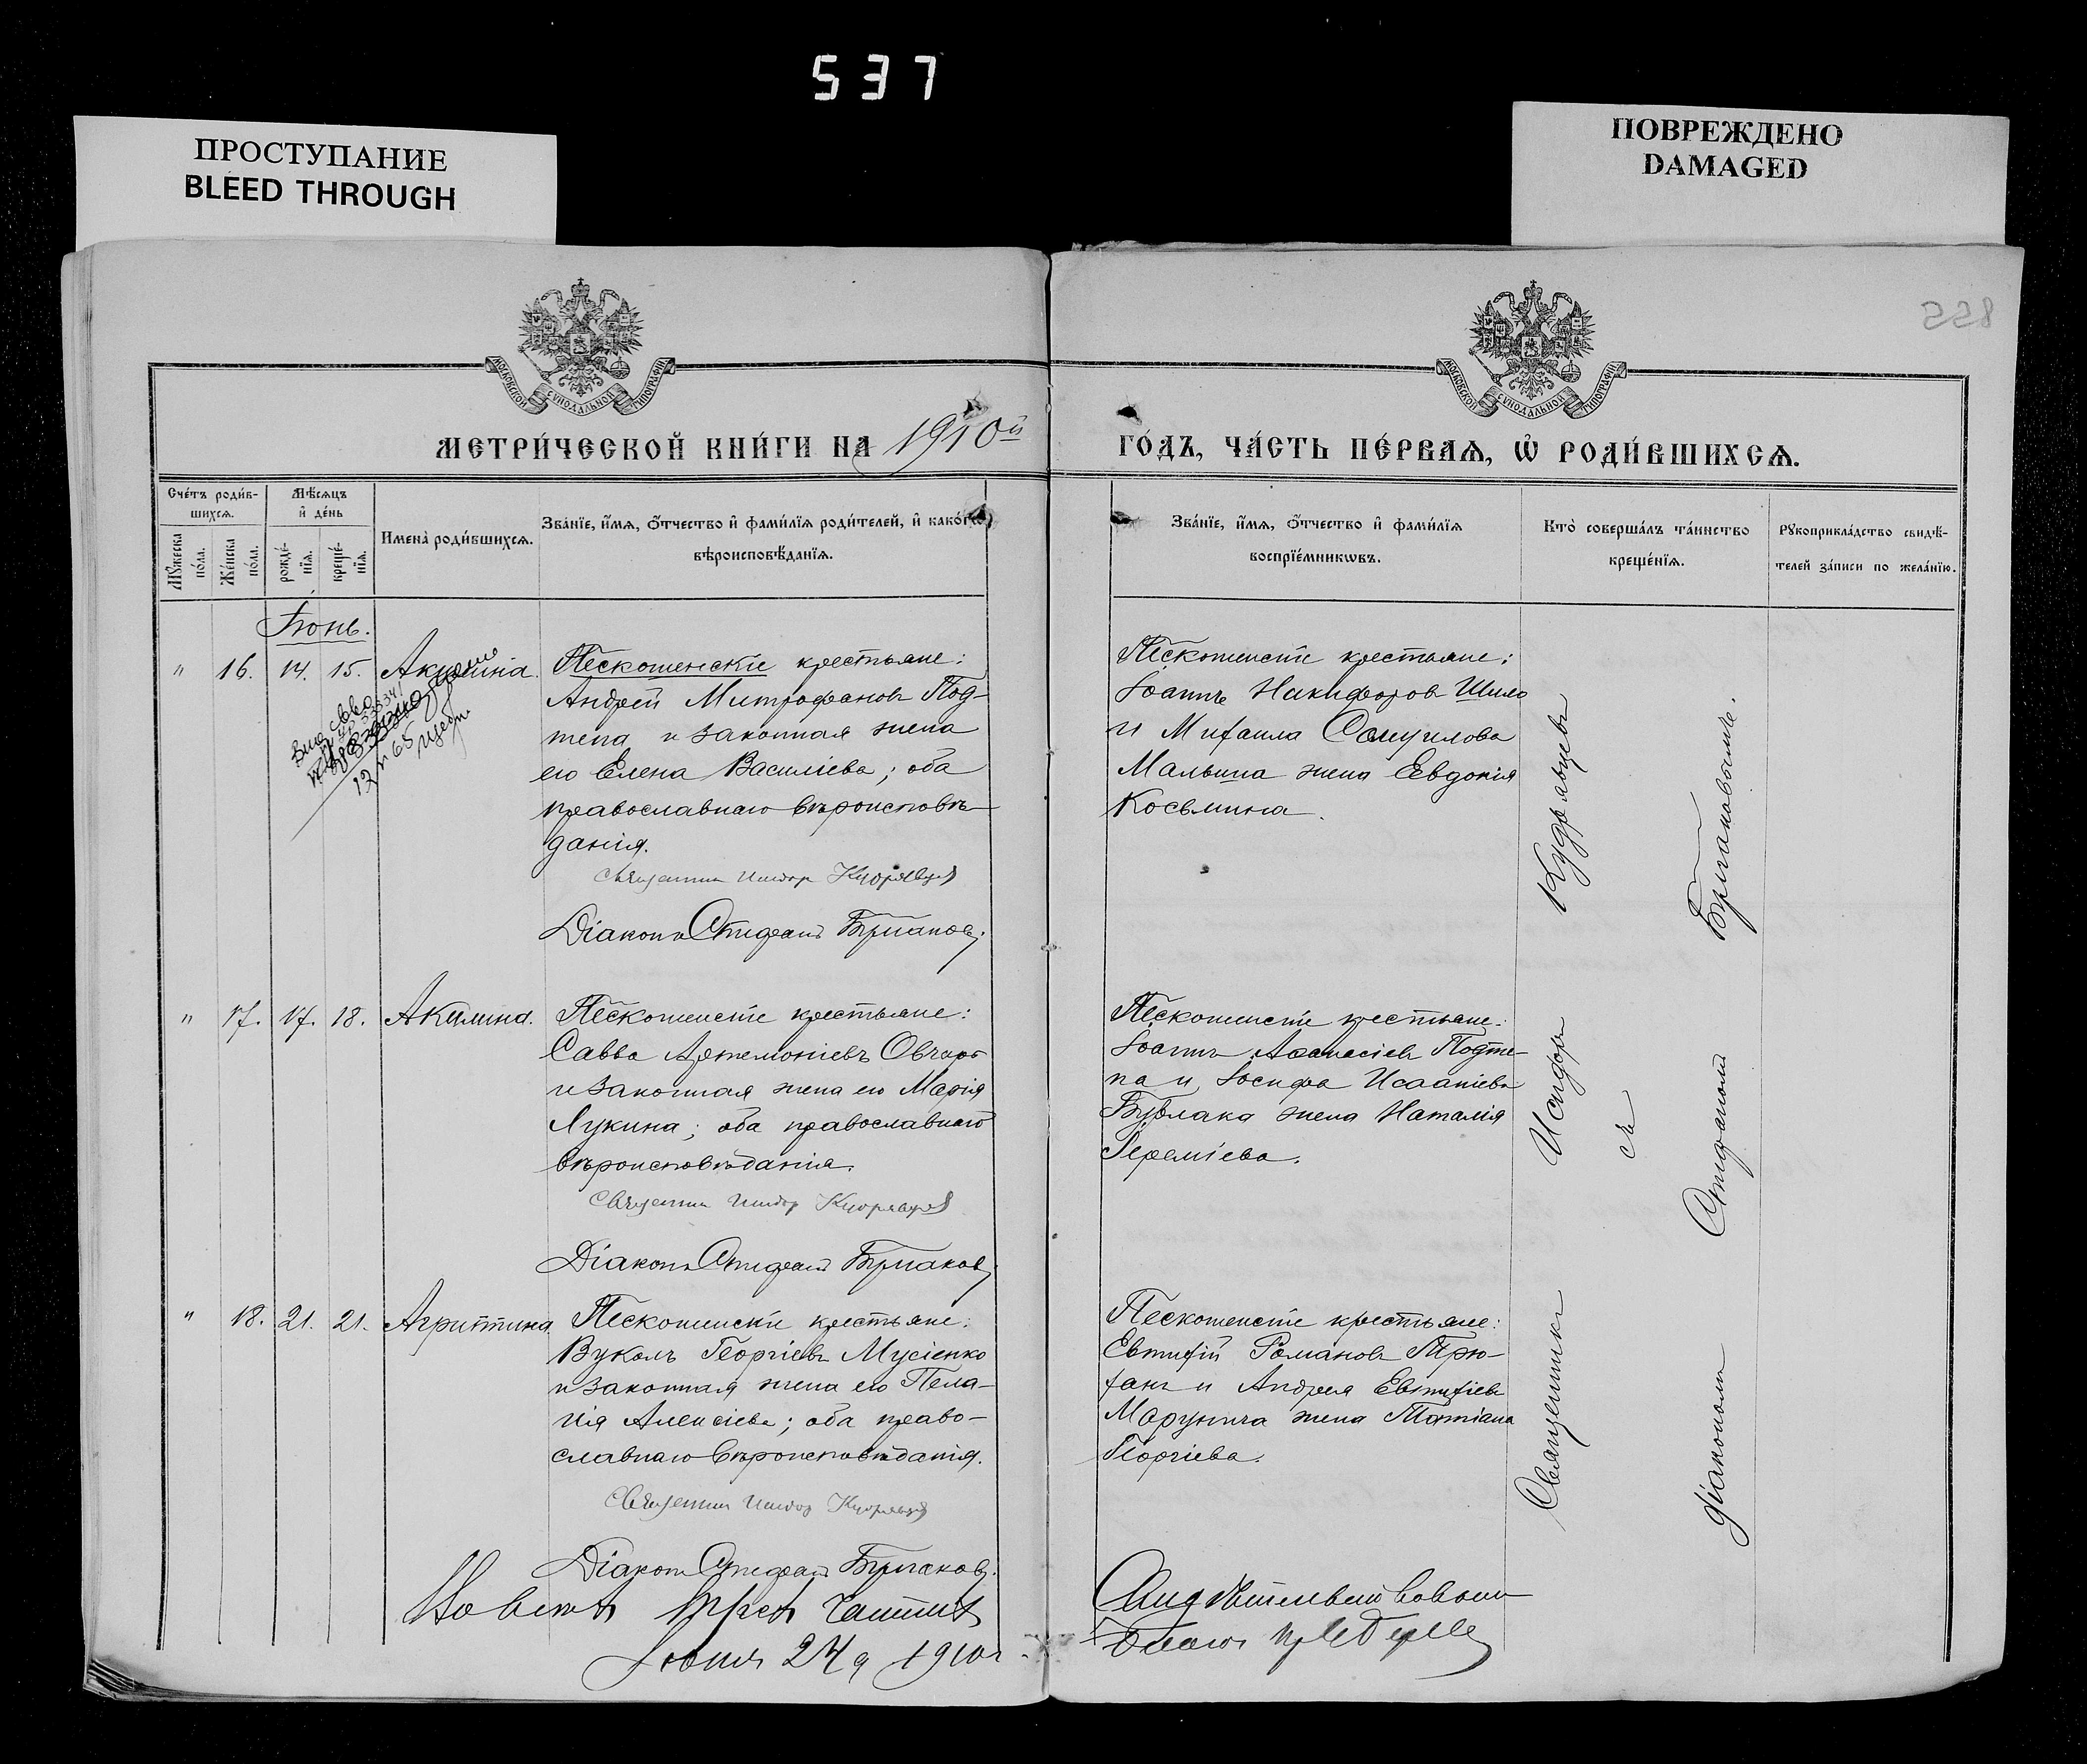 537
ПРОСТУПАНИЕ
BLEED THROUGH
ПОВРЕЖДЕНО
DAMAGED
228
МОСКОВСКОЙ СУНОДАЛЬНОЙ ТИПОГРАФІИ
МОСКОВСКОЙ СУНОДАЛЬНОЙ ТИПОГРАФІИ
МЕТРИ́ЧЕСКОЙ КНИ́ГИ НА 1910й
ГО́ДЪ, ЧА́СТЬ ПЕ́РВАѦ, Ѡ҆ РОДИ́ВШИХСѦ.
Сче́тъ роди́в-
шихсѧ.
Мѣ́сѧцъ
и҆ де́нь
Мꙋ́жеска
по́ла.
Же́нска
по́ла.
рожде́-
нїѧ.
креще́-
нїѧ.
Имена̀ роди́вшихсѧ.
Зва́нїе, и҆́мѧ, ѻ҆́тчество и҆ фами́лїѧ роди́телей, и҆ како́гѡ
вѣроисповѣ́данїѧ.
Зва́нїе, и҆́мѧ, ѻ҆́тчество и҆ фами́лїѧ
воспрїе́мникѡвъ.
Кто̀ соверша́лъ та́инство
креще́нїѧ.
Рꙋкоприкла́дство свидѣ́-
телей за́писи по жела́нїю.
Іюнь.
" 16. 14. 15. Акилина.
Пескошенскіе крестьяне:
Андрей Митрофановъ Под-
тепа и законная жена
его Елена Василіева; оба
православнаго вѣроисповѣ-
данія.
Священник Исидор Кудрявцев
Діаконъ Стефанъ Бурлаковъ
Пескошенскіе крестьяне:
Іоаннъ Никифоровъ Шило
и Михаила Самуилова
Малыша жена Евдокія
Косьмина.
" 17. 17. 18. Акилина.
Пескошенскіе крестьяне:
Савва Артемоніевъ Овчаръ
и законная жена его Марія
Лукина; оба православнаго
вѣроисповѣданія.
Священник Исидор Кудрявцев
Діаконъ Стефанъ Бурлаковъ
Пескошенскіе крестьяне:
Іоаннъ Аѳанасіевъ Подте-
па и Іосифа Исаакіева
Бурлака жена Наталія
Іереміева.
" 18. 21. 21. Агриппина
Пескошенскіе крестьяне:
Вуколъ Георгіевъ Мусіенко
и законная жена его Пела-
гія Алексіева; оба право-
славнаго вѣроисповѣданія.
Священник Исидор Кудрявцев
Діаконъ Стефанъ Бурлаковъ
Пескошенскіе крестьяне:
Евтихій Романовъ Трю-
ханъ и Андрея Евтихіева
жена Татіана
Георгіева.
Священникъ Исидоръ Кудрявцевъ
съ
діакономъ Стефаномъ Бурлаковымъ.
Іюня 24 д 1910 г